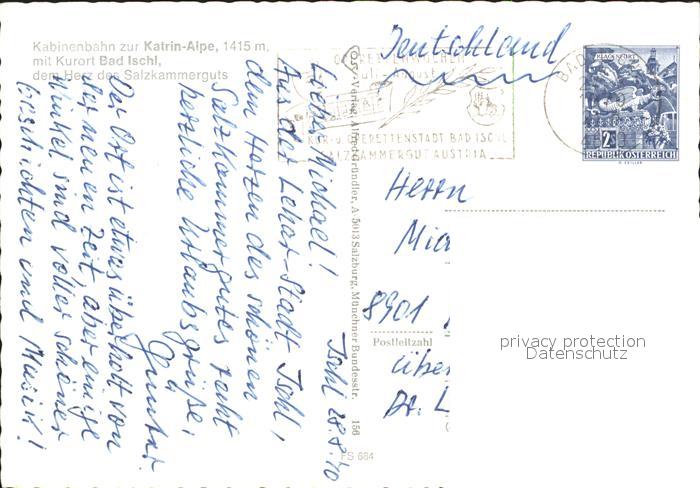 Kabinenbahn zur Katrin-Alpe, 1415 m,
mit Kurort Bad Ischl,
dem Herz des Salzkammerguts
Ischl 28.8.70
Lieber Michael!
Aus der Lehar-Stadt Ischl,
dem Herzen des schönen
Salzkammergutes recht
herzliche Urlaubsgrüße,
Gunter.
Der Ort ist etwas überholt von
der neuen Zeit, aber einige
Winkel sind voller schöner
Geschichten und Musik!
Verlag Alfred Gründler, A-5013 Salzburg, Münchner Bundesstr. 156
FS 684
Deutschland
OPERETTENWOCHEN
Juli August
KUR-U. OPERETTENSTADT BAD ISCHL
SALZKAMMERGUT AUSTRIA
BAD
KLAGENFURT
2S
REPUBLIK ÖSTERREICH
Herrn
8901
Postleitzahl
über
privacy protection
Datenschutz